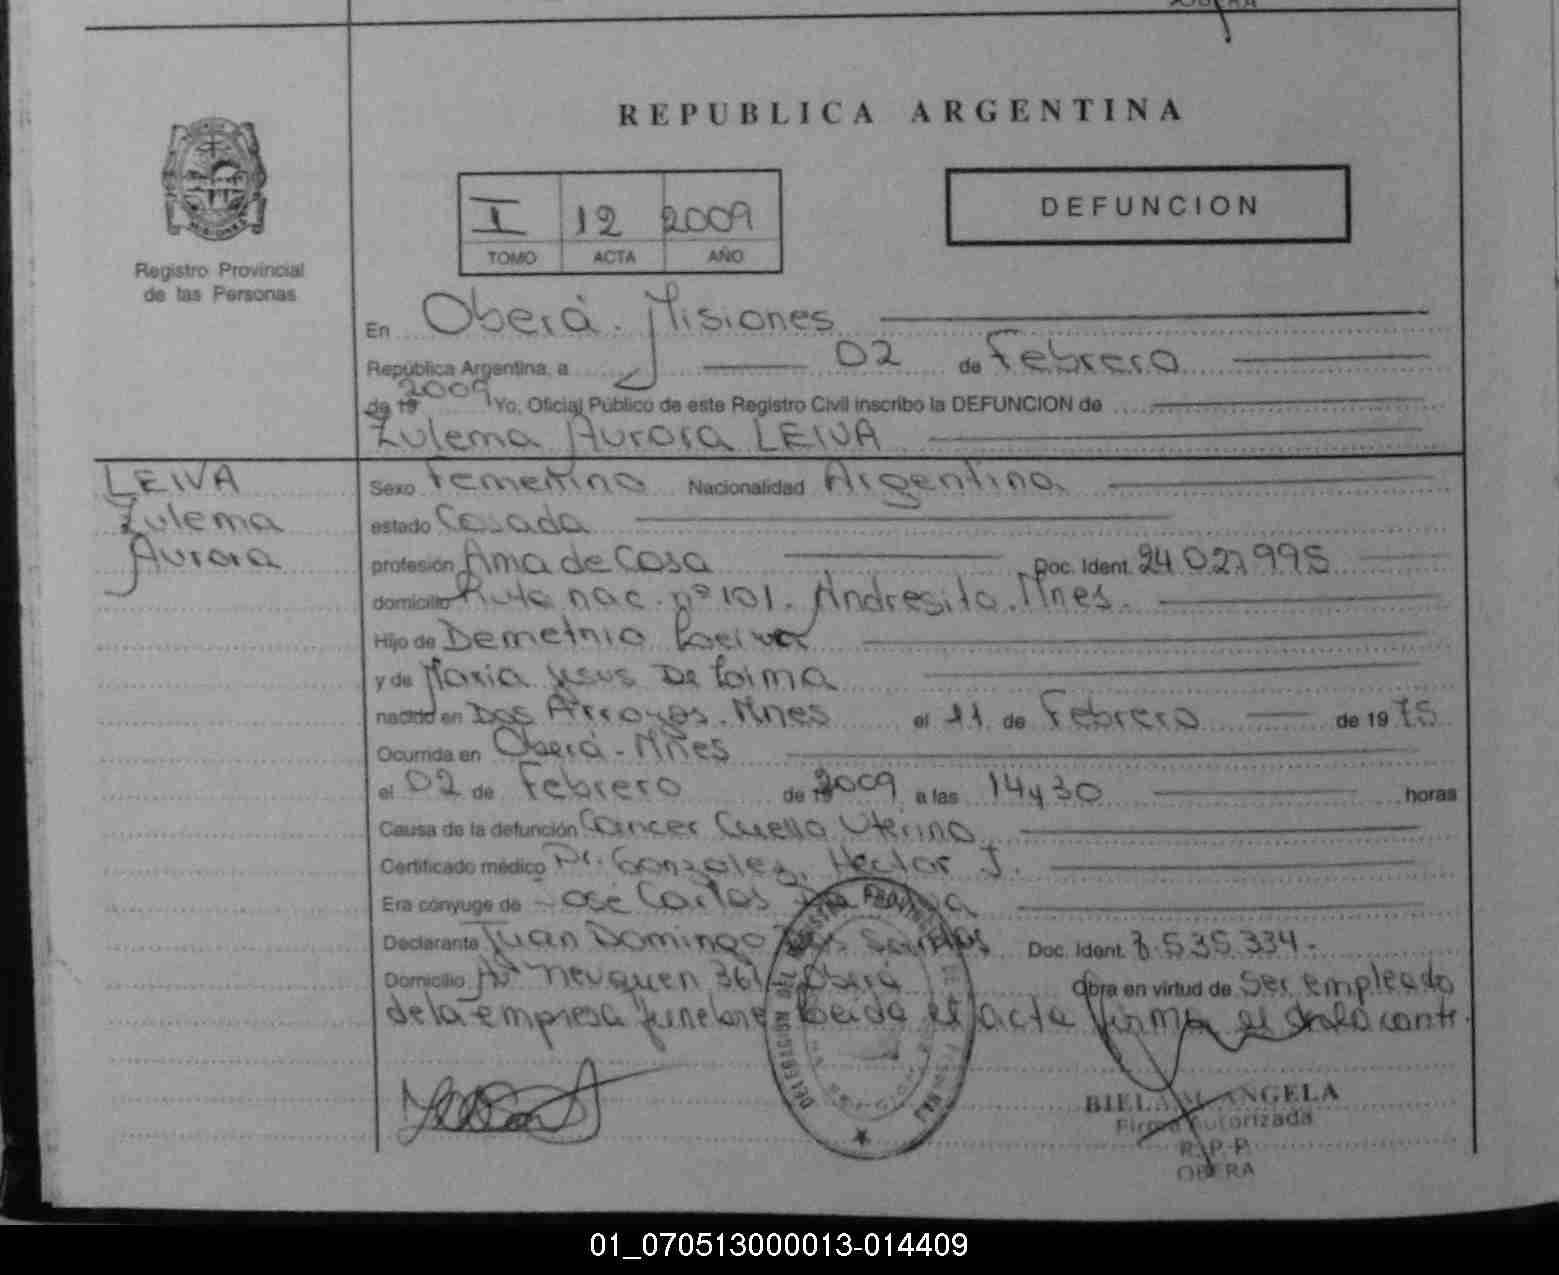 REPUBLICA ARGENTINA
I 12 2009
TOMO ACTA AÑO
DEFUNCION
Registro Provincial
de las Personas
En Oberá. Misiones
República Argentina, a 02 de Febrero
de 19 2009 Yo, Oficial Público de este Registro Civil inscribo la DEFUNCION de
Zulema Aurora LEIVA
LEIVA
Zulema
Aurora
Sexo Femenino Nacionalidad Argentina
estado Casada
profesión Ama de Casa Doc. Ident. 24.027.995
domicilio Ruta nac. nº 101. Andresito. Mnes.
Hijo de Demetrio
y de Maria Jesus De Loima
nacido en Dos Arroyos. Mnes el 11 de Febrero de 1975
Ocurrida en Oberá - Mnes
el 02 de Febrero de 19 2009 a las 14 y 30 horas
Causa de la defunción Cancer Cuello Uterino
Certificado médico Dr. Gonzalez, Hector J.
Era cónyuge de José Carlos Da
Declarante Juan Domingo Dos Santos Doc. Ident. 8.535.334.-
Domicilio Av. Neuquen 361 Oberá Obra en virtud de Ser empleado
de la empresa funebre Leida el acta firma el
BIEL ANGELA
Firma Autorizada
R.P.P.
OBERA
01_070513000013-014409